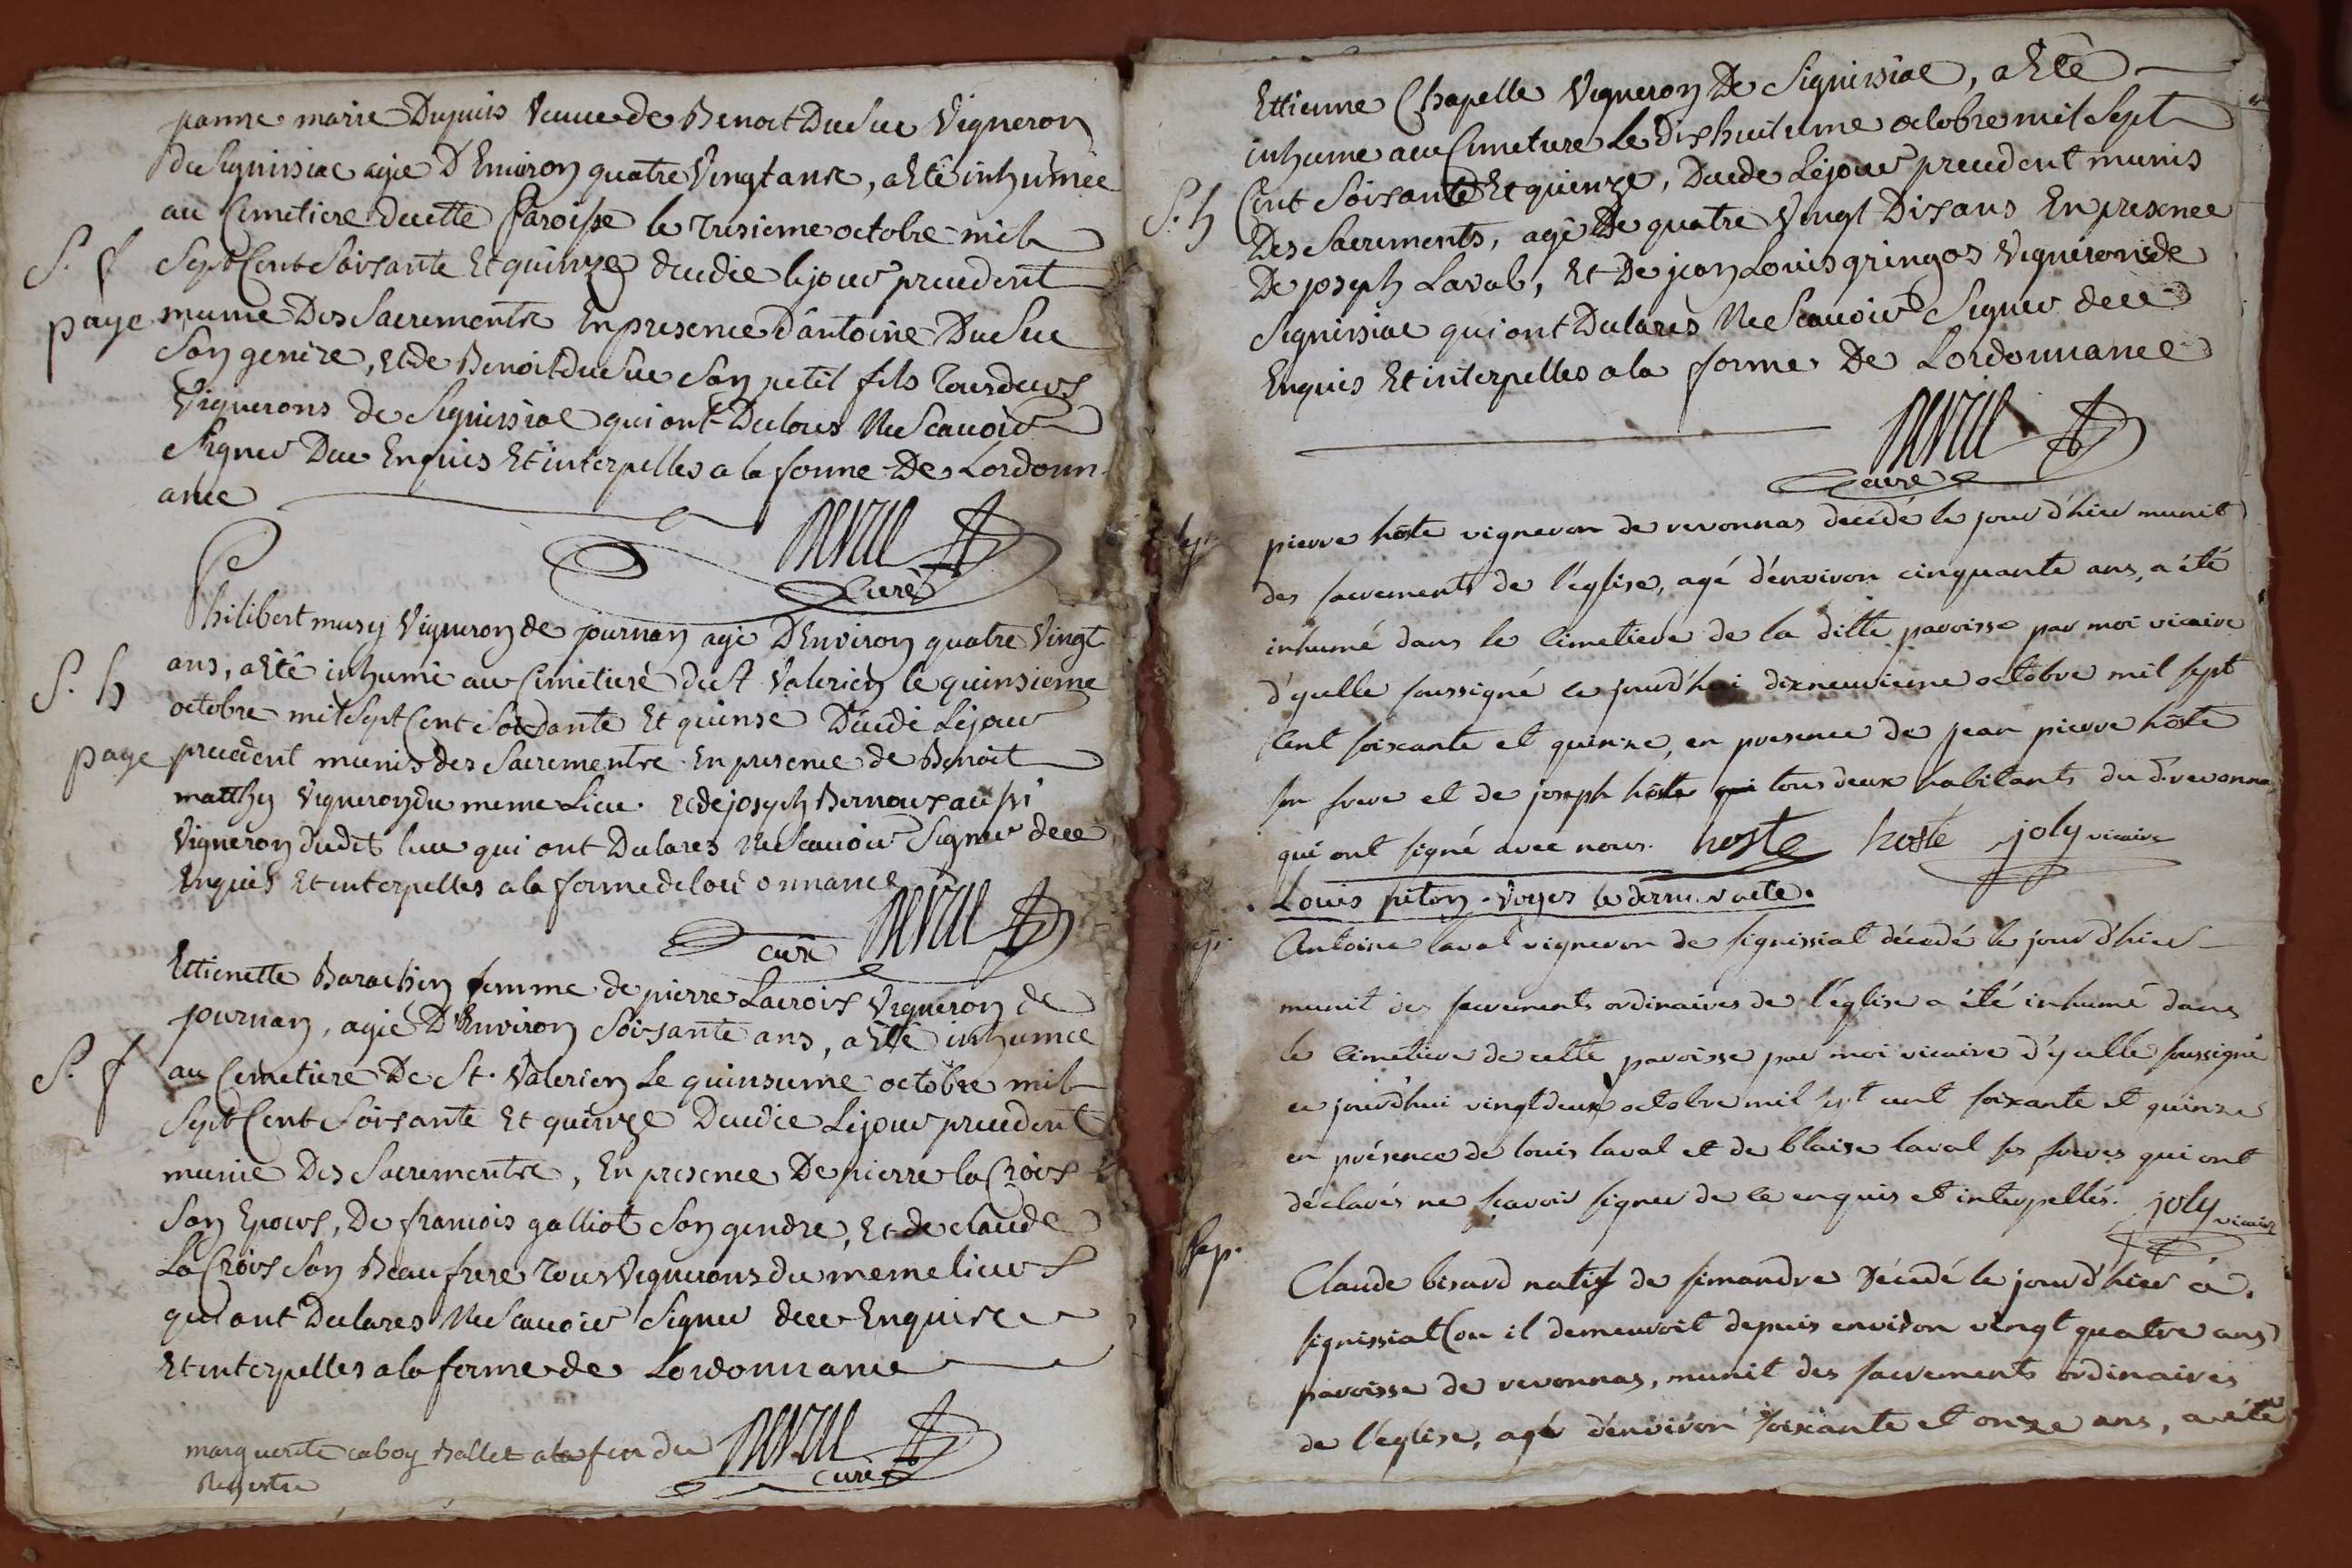 janne marie Dupuis veuve de Benoit Dusuc Vigneron
de Signissiac agée D'Environ quatre Vingt ans, a Eté inhumée
au Cimetiere decette Paroisse le Tresieme octobre mil
S. f
Sept Cent Soixante Et quinze decdée le jour precedent
page
munie Des Sacrements En presence d'antoine Dusuc
Son gendre, et de Benoit dusuc Son petit fils Tous deux
Vignerons de Signissiac qui ont Declares Ne Scavoir
Signer Dece Enquis Et interpelles a la forme De Lordonn-
ance
curé
Philibert musy Vigneron de journan agé D'Environ quatre Vingt
ans, a Eté inhumé au Cimetiere de St Valerien le quinsieme
S. h
octobre mil Sept Cent Soixante Et quinse Décédé Le jour
page
precedent munis des Sacrements En presence de Benoit
matthy Vigneron du meme Lieu. et de joseph Bernoux aussi
Vigneron dudit lieu qui ont Declares Ne Scavoir Signer dece
Enquis Et interpelles a la forme de lordonnance
curé
Ettienette Barachin femme de pierre Lacroix Vigneron de
journan, agée D'Environ Soixante ans, a Eté inhumée
S. f
au Cimetiere De St. Valerien Le quinsieme octobre mil
Sept Cent Soixante Et quinze Decedée Le jour precedent
munie Des Sacrements, En presence De pierre la Croix
Son Epoux, De francois galliot Son gendre, Et de claude
La Croix Son Beaufrere Tous Vignerons du meme lieu
qui ont Declares Ne Scavoir Signer dece Enquis
Et interpelles a la forme de Lordonnance
marguerite caboy Ballet a la fin du
Registre
curé
Ettienne Chapelle Vigneron De Signissiac, a Eté
inhumé au Cimetiere Le dixhuitieme octobre mil Sept
S. h
Cent Soixante Et quinze, Decede Le jour precedent munis
Des Sacrements, agé De quatre Vingt Dix ans En presence
De joseph Laval, Et De jean Louis gringos Vignerons de
Signissiac qui ont Declares Ne Scavoir Signer dece
Enquis Et interpelles a la forme De Lordonnance
curé
Sep.
pierre hoste vigneron de revonnas décédé le jour d'hier munit
des sacrements de l'église, agé d'environ cinquante ans, a été
inhumé dans le cimetiere de la ditte paroisse par moi vicaire
d'ycelle soussigné ce jourd'hui dixneuvieme octobre mil sept
cent soixante et quinze, en presence de jean pierre hoste
son frere et de joseph hoste qui tous deux habitants du d. revonnas
qui ont signé avec nous. hoste hoste joly vicaire
Louis piton. Voyes le dernier acte.
sep.
Antoine laval vigneron de signissiat décédé le jour d'hier
munit des sacrements ordinaires de l'église a été inhumé dans
le cimetiere de cette paroisse par moi vicaire d'ycelle soussigné
ce jourd'hui vingt deux octobre mil sept cent soixante et quinze
en présence de louis laval et de blaise laval ses freres qui ont
déclarés ne sçavoir signer de ce enquis et interpellés. joly vicaire
Sep.
Claude bisard natif de simandre décédé le jour d'hier à
signissiat (ou il demeuroit depuis environ vingt quatre ans)
paroisse de revonnas, munit des sacrements ordinaires
de l'église, agé d'environ soixante et onze ans, a été